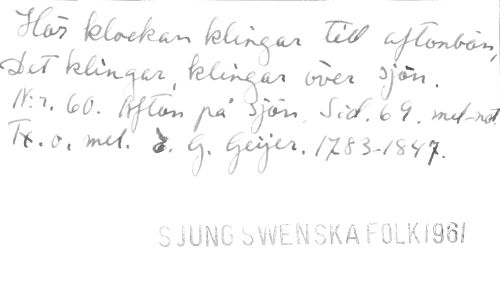 Hör klockan klingar till aftonbön,
Det klingar, klingar över sjön.
N:r. 60. Afton på sjön. Sid. 69. mel-not.
Tx. o. mel. E. G. Geijer. 1783-1847.
SJUNG SWENSKA FOLK 1961